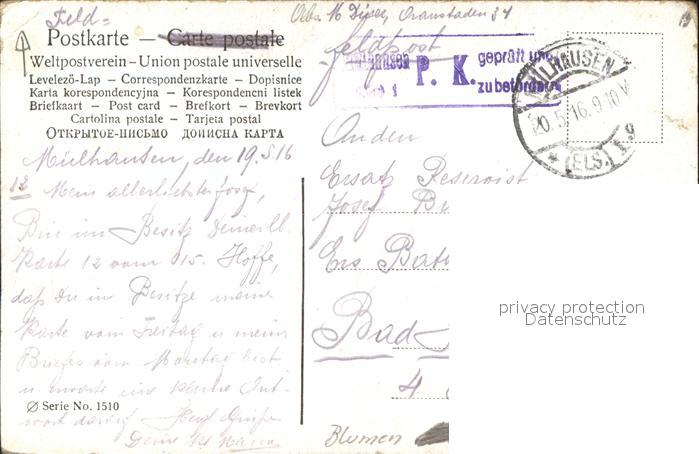 Feld=
Postkarte — Carte postale
Weltpostverein – Union postale universelle
Levelező-Lap — Correspondenzkarte — Dopisnice
Karta korespondencyjna — Korespondencni listek
Briefkaart — Post card — Brefkort — Brevkort
Cartolina postale — Tarjeta postal
ОТКРЫТОЕ-ПИСЬМО ДОПИСНА КАРТА
Mülhausen, den 19.5.16
12 Mein allerliebster Josef,
Bin im Besitz Deiner lb.
Karte 12 vom 15. Hoffe,
daß Du in Besitze meine
Karte vom Freitag u meines
Briefes vom Montag bist
u erwarte eine kleine Ant-
wort darauf. Herzl. Grüße
Deine
Serie No. 1510
Abs. Oranstaden 34
Feldpost
Mülhausen P. K. geprüft und
zu befördern
MÜLHAUSEN
20.5.16.9-10V
(ELS.) 1 g
An den
Ersatz Reservist
Josef
Ers Bat
Bad
4
Blumen
privacy protection
Datenschutz